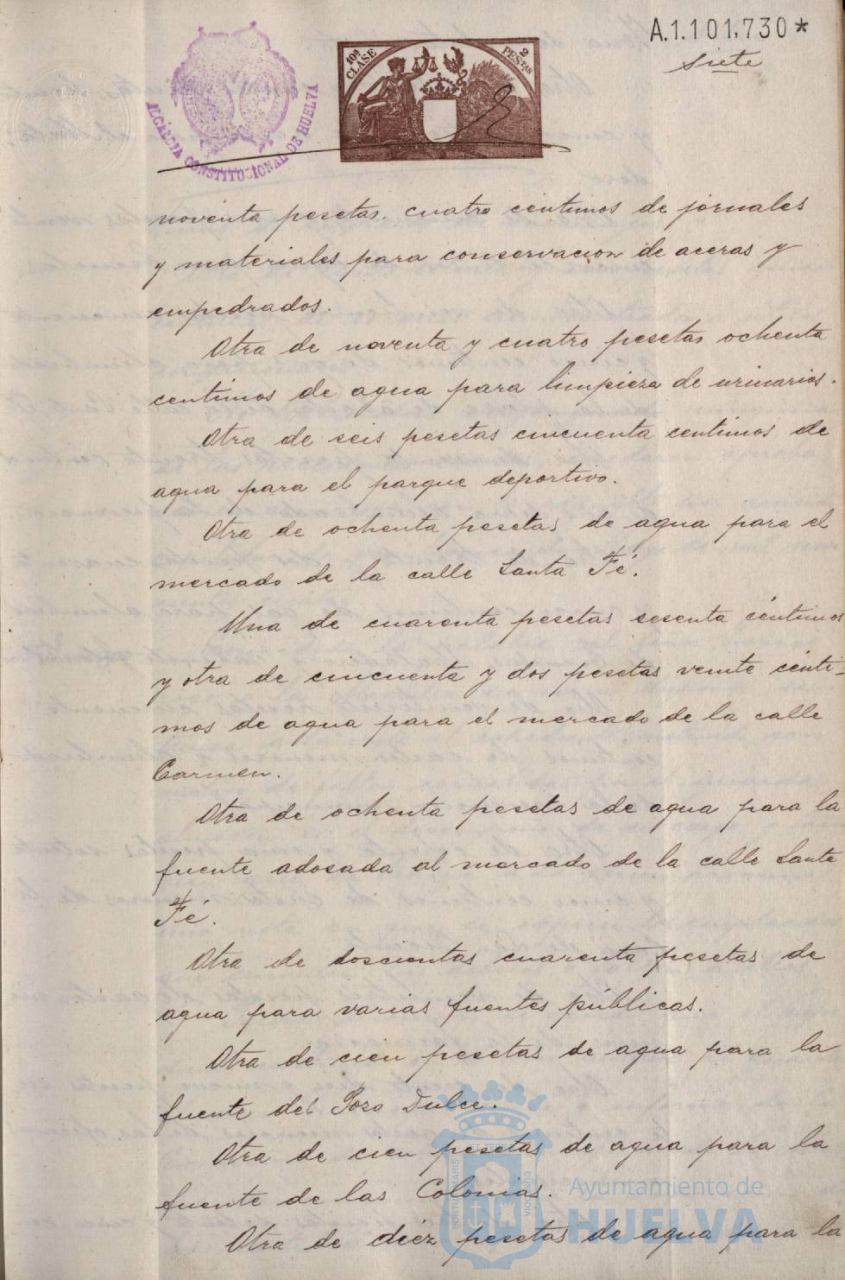 A.1.101,730*
siete
10ª CLASE
2 PESETAS
ALCALDIA CONSTITUCIONAL DE HUELVA
noventa pesetas. cuatro centimos de jornales
y materiales para conservacion de aceras y
empedrados.
Otra de noventa y cuatro pesetas ochenta
centimos de agua para limpieza de urinarios.
Otra de seis pesetas cincuenta centimos de
agua para el parque deportivo.
Otra de ochenta pesetas de agua para el
mercado de la calle Santa Fé.
Una de cuarenta pesetas sesenta céntimos
y otra de cincuenta y dos pesetas veinte cénti-
mos de agua para el mercado de la calle
Carmen.
Otra de ochenta pesetas de agua para la
fuente adosada al mercado de la calle Santa
Fé.
Otra de doscientas cuarenta pesetas de
agua para varias fuentes públicas.
Otra de cien pesetas de agua para la
fuente del Pozo Dulce.
Otra de cien pesetas de agua para la
fuente de las Colonias.
Otra de diez pesetas de agua para la
Ayuntamiento de
HUELVA